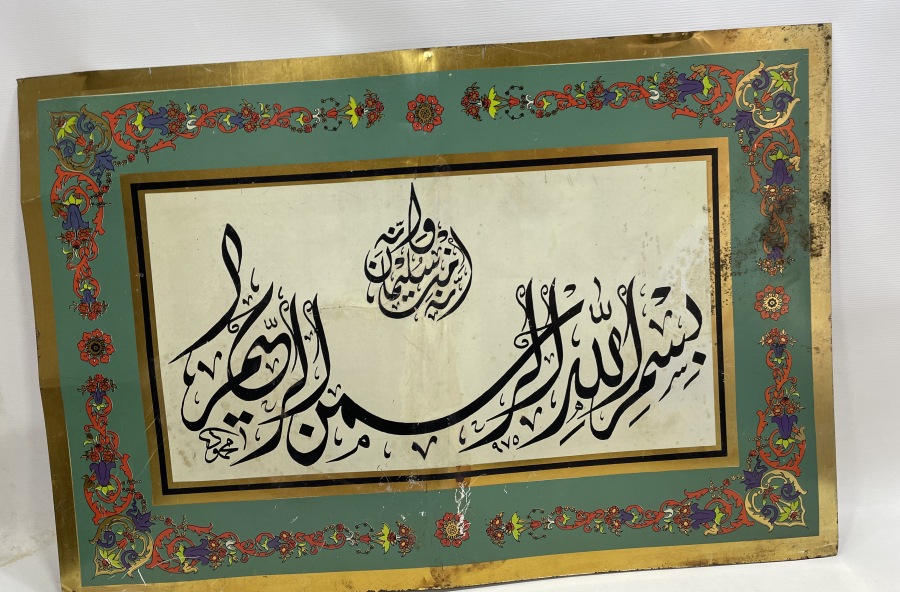 إنه من سليمان وإنه
بسم الله الرحمن الرحيم
٩٧٥